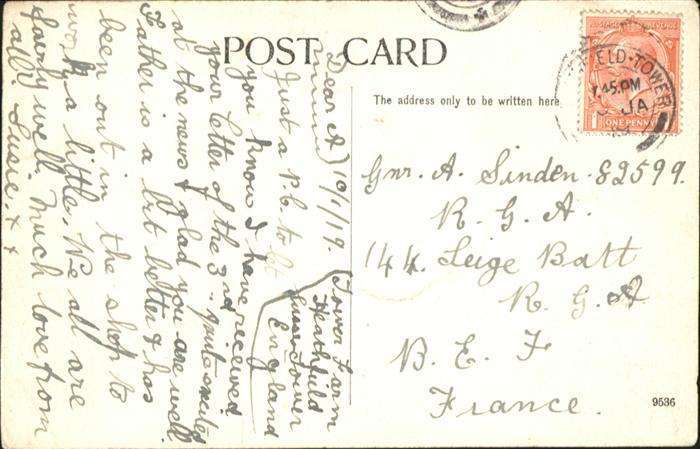 POST CARD
The address only to be written here
ELD·TOWER
7.45.PM
JA
19
ONE PENNY
Gnr. A. Sinden. 82599.
R. G. A.
144. Seige Batt
R. G. A
B. E. F
France.
9536
Tower Farm
Heathfield
Tower
England
10/1/19.
Dear A
Just a P.C to let
you know I have received
your letter of the 3rd quite excited
at the news & glad you are well.
Father is a bit better & has
been out in the shop to
work a little. We all are
fairly well. Much love from
all. Susie. x x